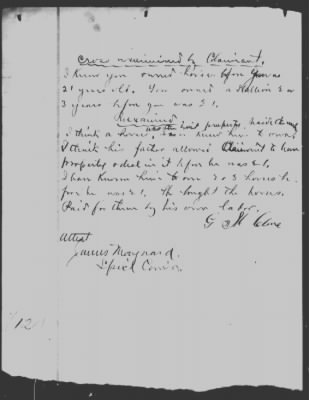 Cross examined by Claimant.
I knew you owned horses before you was
21 years old. You owned a Stallion 2 or
3 years before you was 21.
Reexamined
was the first property
I think a horse, I knew him to own
I think his father allowed Claimant to have
property & deal in it before he was 21.
I have known him to own 2 or 3 horses be
fore he was 21. He bought the horses.
Paid for them by his own labor.
G M Cline
Attest
James Maynard.
Special Comr.
12